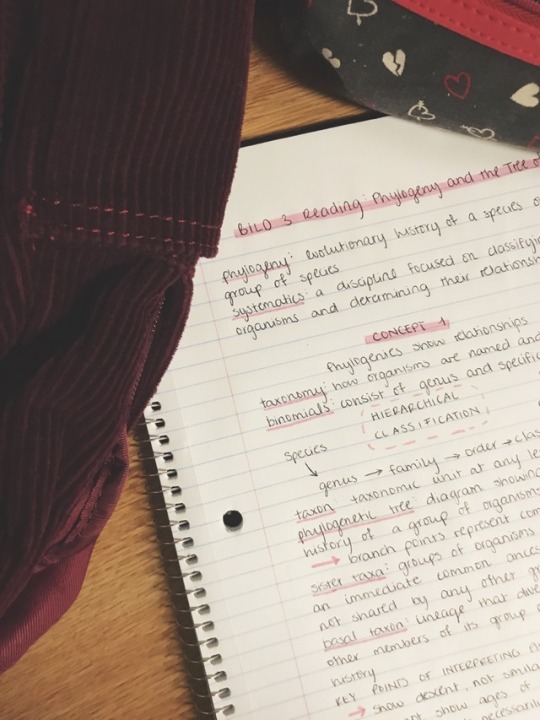 BILD 3 Reading: Phylogeny and the Tree of
phylogeny: evolutionary history of a species or
group of species
systematics: a discipline focused on classifying
organisms and determining their relationsh
CONCEPT 1
Phylogenies show relationships
taxonomy: how organisms are named and
binomials: consist of genus and specific
HIERARCHICAL
CLASSIFICATION
species
genus → family → order → clas
taxon: taxonomic unit at any le
phylogenetic tree: diagram showing
history of a group of organisms
→ branch points represent com
sister taxa: groups of organisms
an immediate common ances
not shared by any other gr
basal taxon: lineage that dive
other members of its group
history
KEY POINTS OF INTERPRETING
→ show descent, not simila
show ages of
necessaril